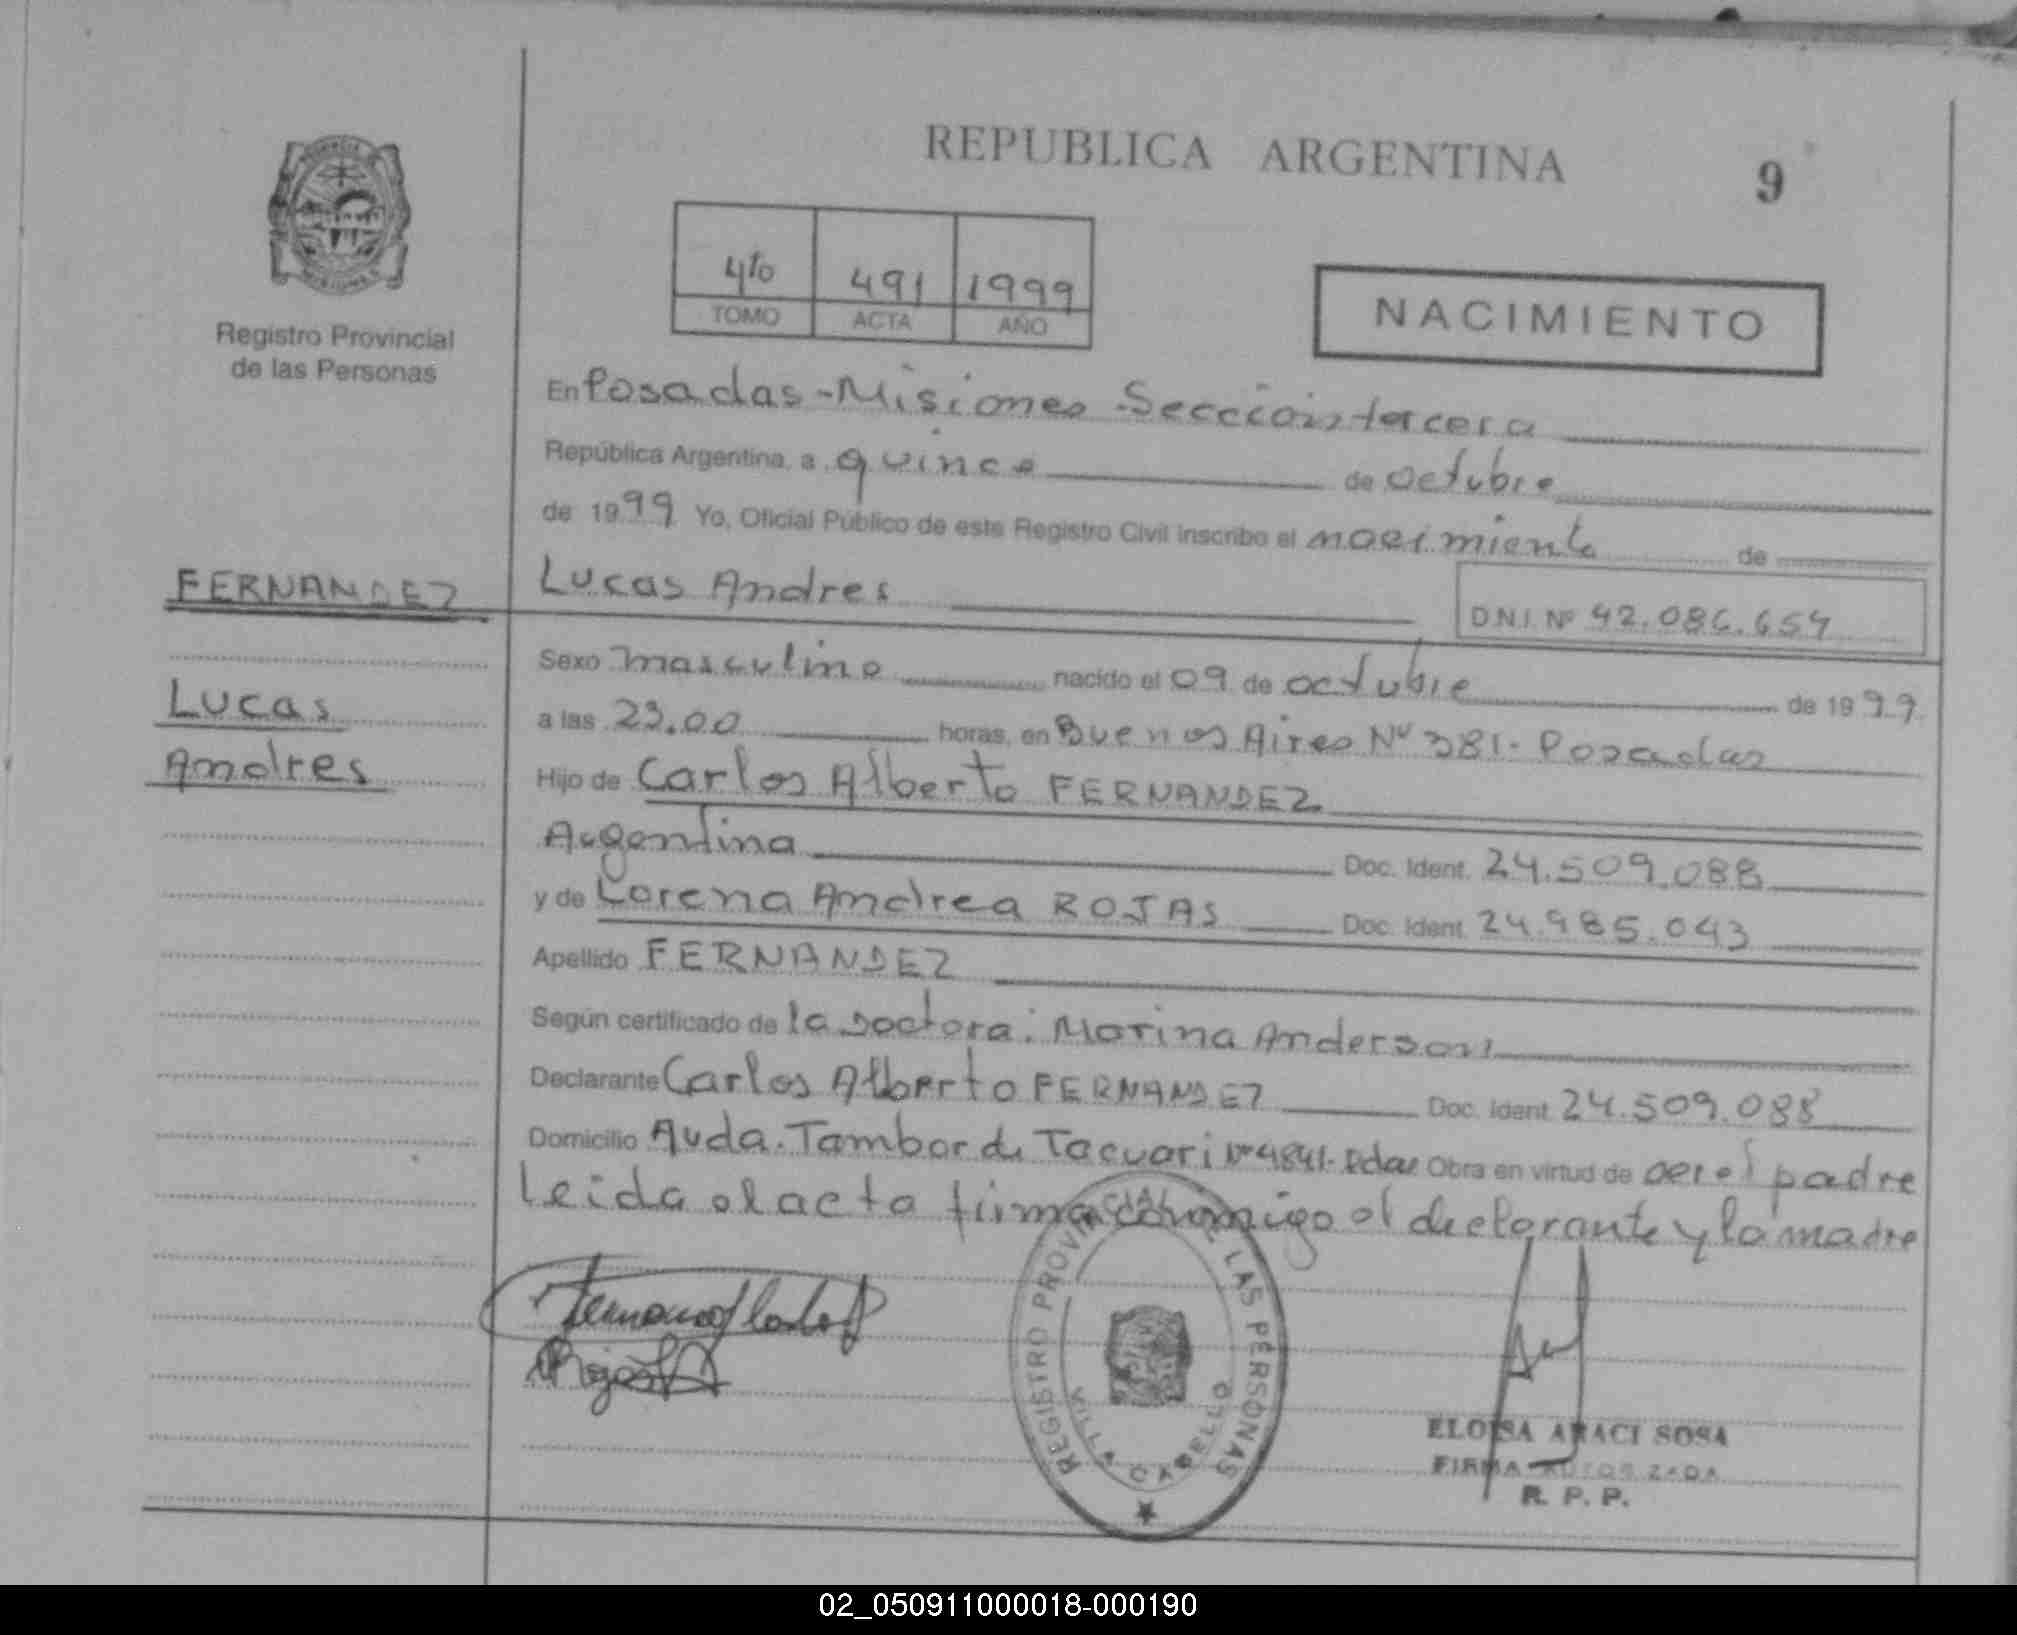 REPUBLICA ARGENTINA
9
Registro Provincial
de las Personas
4to 491 1999
TOMO ACTA AÑO
NACIMIENTO
En Posadas - Misiones - Sección tercera
República Argentina, a quince de octubre
de 1999 Yo, Oficial Público de este Registro Civil inscribo el nacimiento de
FERNANDEZ
Lucas
Andres
Lucas Andres
D.N.I. Nº 42.086.654
Sexo masculino nacido el 09 de octubre de 1999
a las 23.00 horas, en Buenos Aires Nº 381 - Posadas
Hijo de Carlos Alberto FERNANDEZ
Argentina Doc. Ident. 24.509.088
y de Lorena Andrea ROJAS Doc. Ident. 24.985.043
Apellido FERNANDEZ
Según certificado de la Doctora: Marina Anderson
Declarante Carlos Alberto FERNANDEZ Doc. Ident. 24.509.088
Domicilio Avda. Tambor de Tacuari Nº 4841 - Pdas Obra en virtud de ser el padre
Leida el acta firma conmigo el declarante y la madre
REGISTRO PROVINCIAL DE LAS PERSONAS
VILLA CABELLO
ELOISA ARACI SOSA
FIRMA AUTORIZADA
R. P. P.
02_050911000018-000190